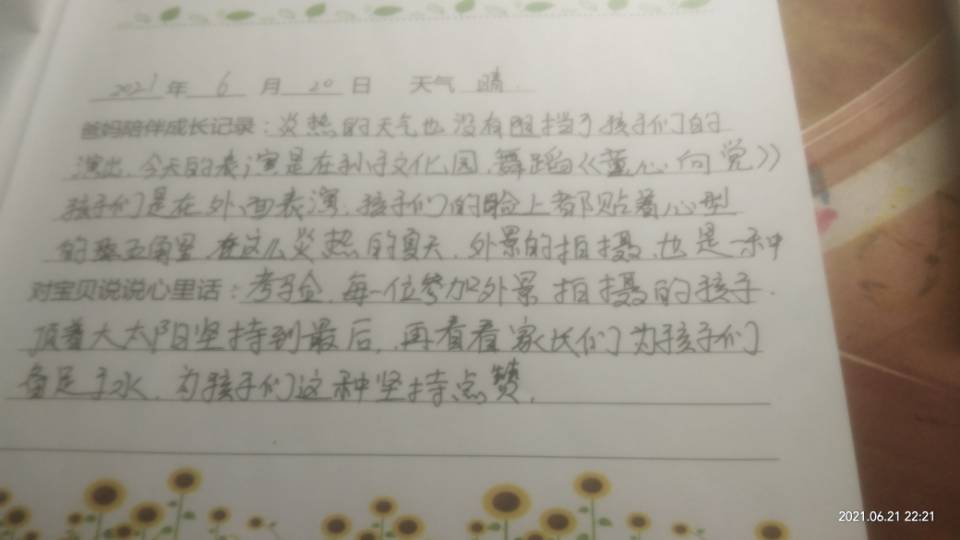 2021年 6 月 20 日 天气 晴
爸妈陪伴成长记录：炎热的天气也没有阻挡了孩子们的
演出，今天的表演是在孙子文化园，舞蹈《童心向党》
孩子们是在外面表演，孩子们的脸上都贴着心型
的 五角星，在这么炎热的夏天，外景的拍摄，也是一种
对宝贝说说心里话：考验，每一位参加外景拍摄的孩子，
顶着大太阳坚持到最后，再看看家长们为孩子们
备足了水，为孩子们这种坚持点赞。
2021.06.21 22:21